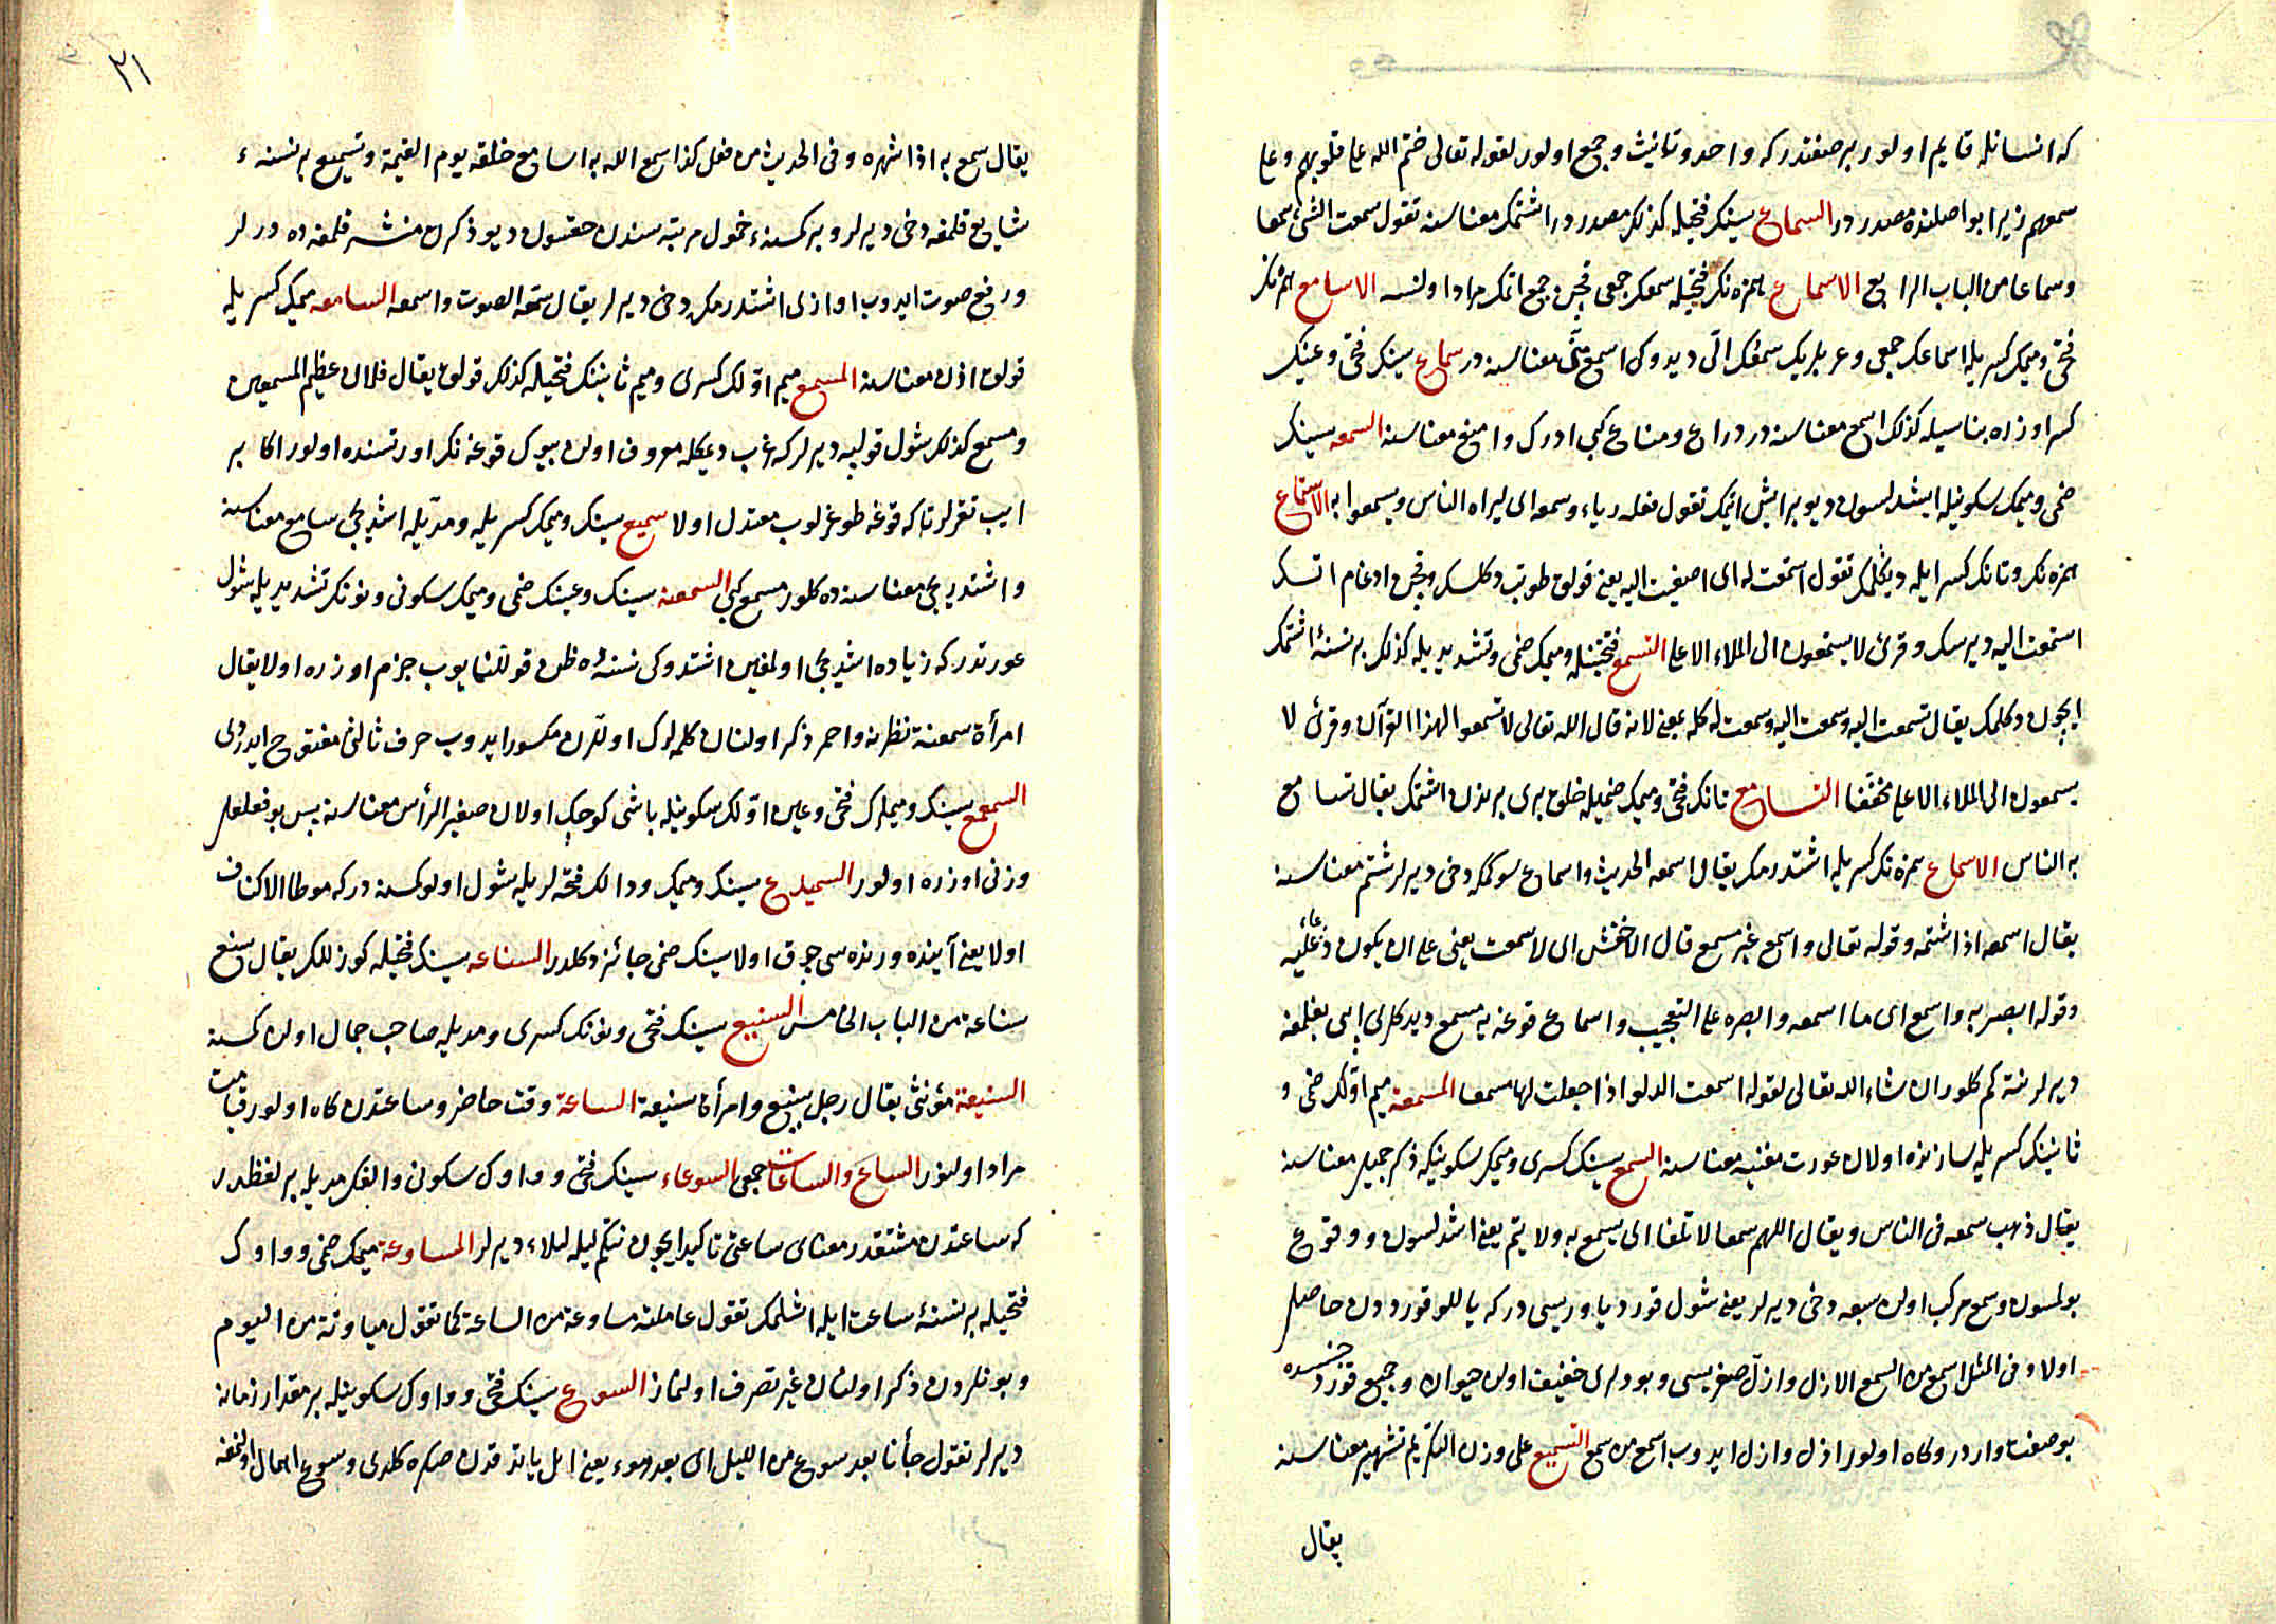 که انسانله قایم اولور بر صفتدر که واحد و تأنیث و جمع اولور لقوله تعالی ختم الله علی قلوبهم وعلی
سمعهم زیرا بو اصلنده مصدر در السماع سینک فتحیله کذلک مصدر در اشتمک معناسنه تقول سمعت الشیٔ سمعا
وسماعا من الباب الرابع الاسماع همزه نک فتحیله سمعک جمعی قچن جمع اتمک مراد اولنسه الاسامع همزه نک
فتحی و میمک کسریله اسماعک جمعی و عربلریک سمعک الّی دیدوکی اسمع منّی معناسنه در سماع سینک فتحی و عینک
کسر اوزره بناسیله کذلک اسمع معناسنه در دراع و مناع کبی ادرک و امنع معناسنه السمعه سینک
ضمی و میمک سکونیله ایشدلسون دیو بر ایش اتمک تقول فعله ریاء وسمعه ای لیراه الناس ویسمعوا به الاستماع
همزه نک و تانک کسرایله دیکلمک تقول استمعت له ای اصغیت الیه یعنی قولق طوتب دکلسک و قچن ادغام اتسک
استمعت الیه دیرسک وقرئ لا یسمعون الی الملاء الاعلی التسمع فتحتینله و میمک ضمی و تشدیدیله کذلک بر نسنۀ اشتمک
ایچون دکلمک یقال تسمعت الیه وسمعت الیه وسمعت له کله بمعنی لانه قال الله تعالی لا تسمعوا لهذا القرآن وقرئ لا
یسمعون الی الملاء الاعلی مخففا التسامع تانک فتحی و میمک ضمیله خلق بری برندن اشتمک یقال تسامع
به الناس الاسماع همزه نک کسریله اشتدرمک یقال اسمعه الحدیث واسماع سوکمکه دخی دیرلر شتم معناسنه
یقال اسمعه اذا شتمه وقوله تعالی واسمع غیر مسمع قال الاخفش ای لا سمعت یعنی علی ان یکون دعاء علیه
وقوله ابصر به واسمع ای ما اسمعه وابصره علی التعجب واسماع قوغه یه مسمع دیدکلری ایپی بغلمغه
دیرلر نته کم کلور ان شاء الله تعالی لقوله اسمعت الدلو اذا جعلت لها مسمعا المسمعة میم اوّلک ضمی و
ثانینک کسریله سازنده اولان عورت مغنیه معناسنه السمع سینک کسری و میمک سکونیکه ذکر جمیل معناسنه
یقال ذهب سمعه فی الناس ویقال اللهم سمعا لا بلغا ای یسمع به ولا یتم یعنی اشدلسون و وقوع
بولمسون وسمع مرکب اولن سبعه دخی دیرلر یعنی شول قورد یاوریسی در که یاللو قورددن حاصل
اولا وفی المثل اسمع من السمع الازل وازلّ صغریسی و بودلری خفیف اولن حیوان و جمیع قورد جنسنده
بو صفت واردر و کاه اولور ازل وازل ایدوب اسمع من سمع التسمیع علی وزن التکریم تشهیر معناسنه
یقال
٢١
یقال سمع به اذا شهره وفی الحدیث من فعل کذا سمع الله به اسامع خلقه یوم القیمة و تسمیع بر نسنۀ
شایع قلمغه دخی دیرلر و بر کسنۀ خمول مرتبه سندن چقسون دیو ذکرن منتشر قلمغه ده دیرلر
ورفع صوت ایدوب اوازی اشتدرمکه دخی دیرلر یقال سمّعه الصوت واسمعه السامعه میمک کسریله
قولق اذن معناسنه المسمع میم اوّلک کسری و میم ثانینک فتحیله کذلک قولق یقال فلان عظیم المسمعین
ومسمع کذلک شول قولپه دیرلر که غرب دیمکله معروف اولن بیوک قوغه نک اورتسنده اولور اکا بر
ایپ تقرلر تا که قوغه طوغرلوب معتدل اولا سمیع سینک و میمک کسریله و مدّیله اشدیجی سامع معناسنه
و اشتدریجی معناسنه ده کلور مسمع کبی السمعنه سینک و عینک ضمی و میمک سکونی و نونک تشدیدیله شول
عورتدر که زیاده اشدیجی اولمغین اشتدوکی نسنۀ ظن قوللنمایوب جزم اوزره اولا یقال
امرأة سمعنة نظرنه واحمر ذکر اولنان کلمه لرک اوّللرن مکسور ایدوب حرف ثالثن مفتوح ایدردی
السمعمع سینک و میملرک فتحی و عین اوّلک سکونیله باشی کوچک اولان صغیر الرأس معناسنه پس بو فعلعل
وزنی اوزره اولور السمیدع سینک و میمک و دالک فتحه لریله شول اولو کسنه در که موطا الاکناف
اولا یعنی آینده ورنده سی چوق اولا سینک ضمی جائز دکلدر السناعه سینک فتحیله کوزللک یقال سنع
سناعة من الباب الخامس السنیع سینک فتحی و نونک کسری و مدیله صاحب جمال اولن کسنه
السنیعة مؤنثی یقال رجل سنیع وامرأة سنیعة الساعة وقت حاضر و ساعتدن کاه اولور قیامت
مراد اولنور الساع والساعات جمعی السوعاء سینک فتحی و واوک سکونی و الفک مدیله بر لفظدر
که ساعتدن مشتقدر معنای ساعتی تاکید ایچون نتکم لیله لیلاء دیرلر المساوعة میمک ضمی و واوک
فتحیله بر نسنۀ ساعت ایله اشلمک تقول عاملته مساوعة من الساعة کما تقول میاومة من الیوم
و بونلردن ذکر اولنان غیر تصرف اولنماز السوع سینک فتحی و واوک سکونیله بر مقدار زمانه
دیرلر تقول جأنا بعد سوع من اللیل ای بعد هدوء یعنی ال یاتدقدن صکره کلدی وسوع اهمال اولنمغه